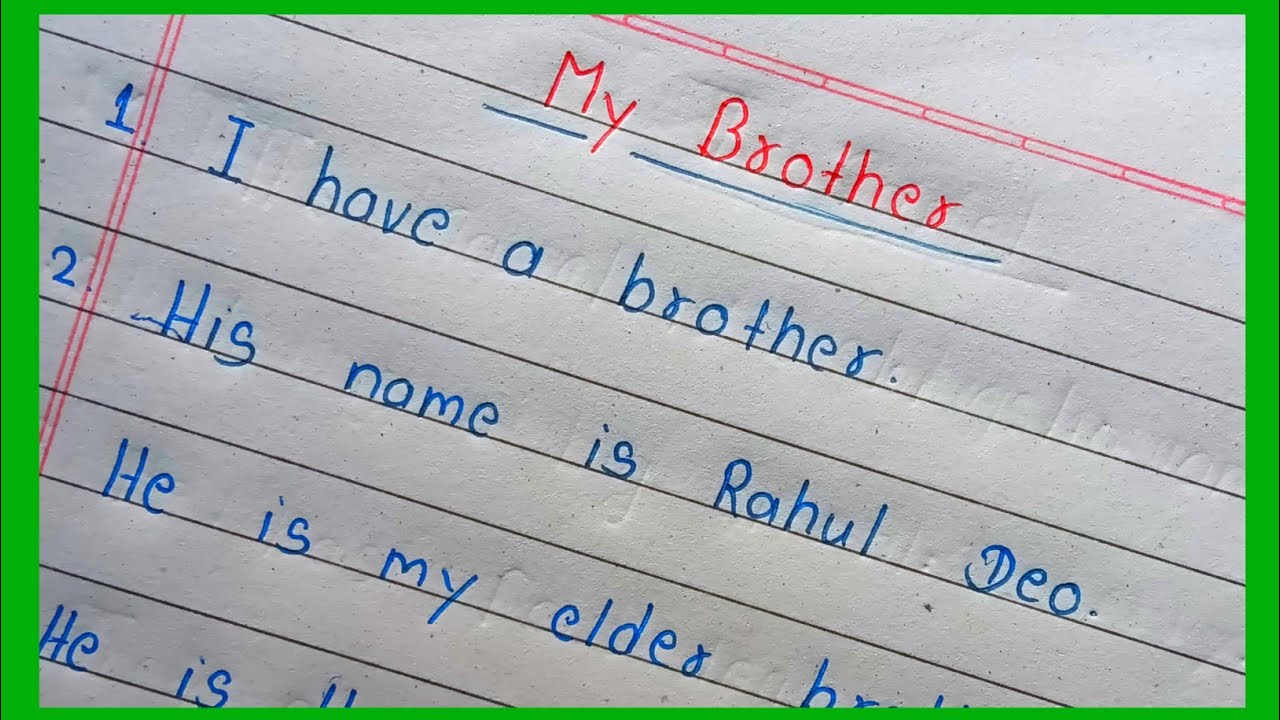 My Brother
1. I have a brother.
2. His name is Rahul Deo.
He is my elder
He is